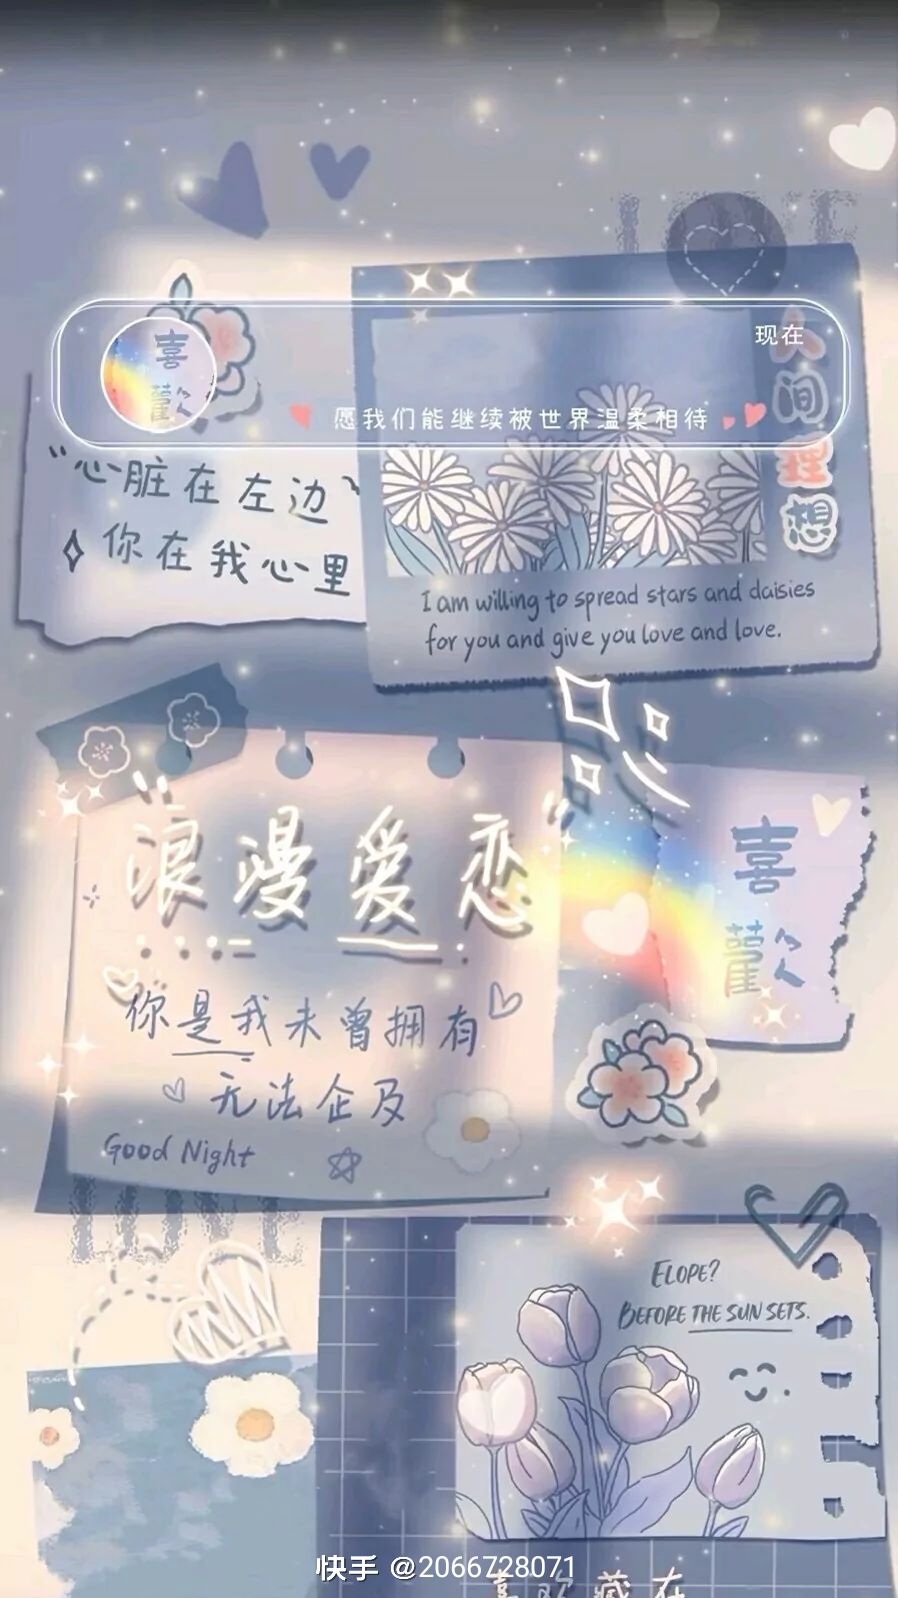 LOVE
现在
喜
歡
愿我们能继续被世界温柔相待
人间理想
"心脏在左边"
你在我心里
I am willing to spread stars and daisies
for you and give you love and love.
"浪漫爱恋"
喜
歡
你是我未曾拥有
无法企及
Good Night
LOVE
ELOPE?
BEFORE THE SUN SETS.
快手 @2066728071
喜欢藏在